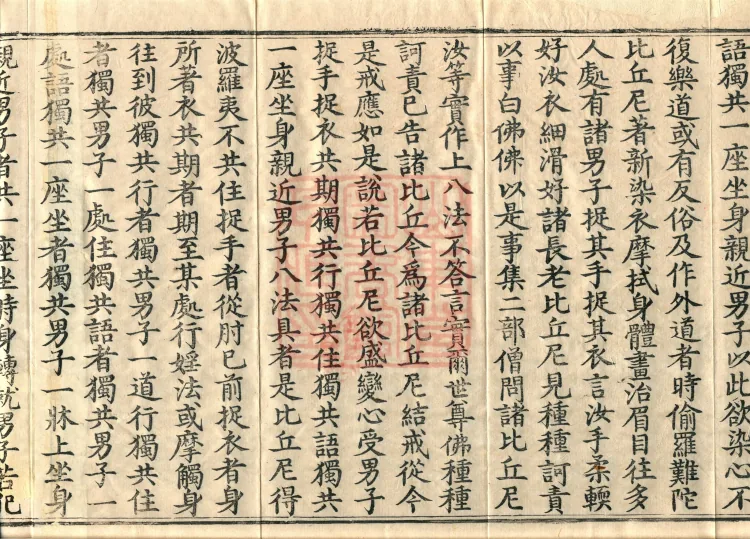 語獨共一座坐身親近男子以此欲染心不
復樂道或有反俗及作外道者時偷羅難陀
比丘尼著新染衣摩拭身體畫治眉目往多
人處有諸男子捉其手捉其衣言汝手柔輭
好汝衣細滑好諸長老比丘尼見種種訶責
以事白佛佛以是事集二部僧問諸比丘尼
汝等實作上八法不答言實爾世尊佛種種
訶責已告諸比丘今為諸比丘尼結戒從今
是戒應如是說若比丘尼欲盛變心受男子
捉手捉衣共期獨共行獨共住獨共語獨共
一座坐身親近男子八法具者是比丘尼得
波羅夷不共住捉手者從肘已前捉衣者身
所著衣共期者期至某處行婬法或摩觸身
往到彼獨共行者獨共男子一道行獨共住
者獨共男子一處住獨共語者獨共男子一
處語獨共一座坐者獨共男子一牀上坐身
親近男子者共一座坐時身轉就男子若犯